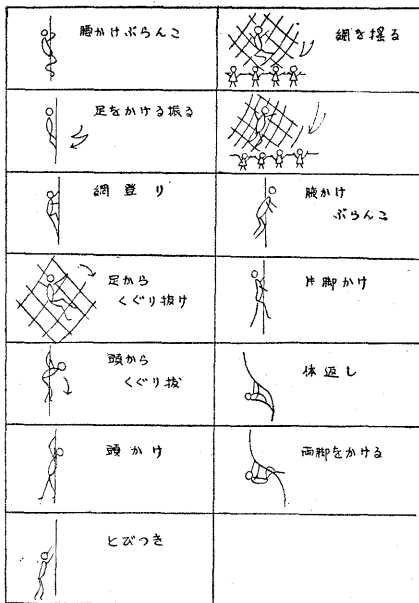 腰かけぶらんこ
網を揺る
足をかける振る
網登り
腕かけ
ぶらんこ
足から
くぐり抜け
片脚かけ
頭から
くぐり抜
体返し
頭かけ
両脚をかける
とびつき